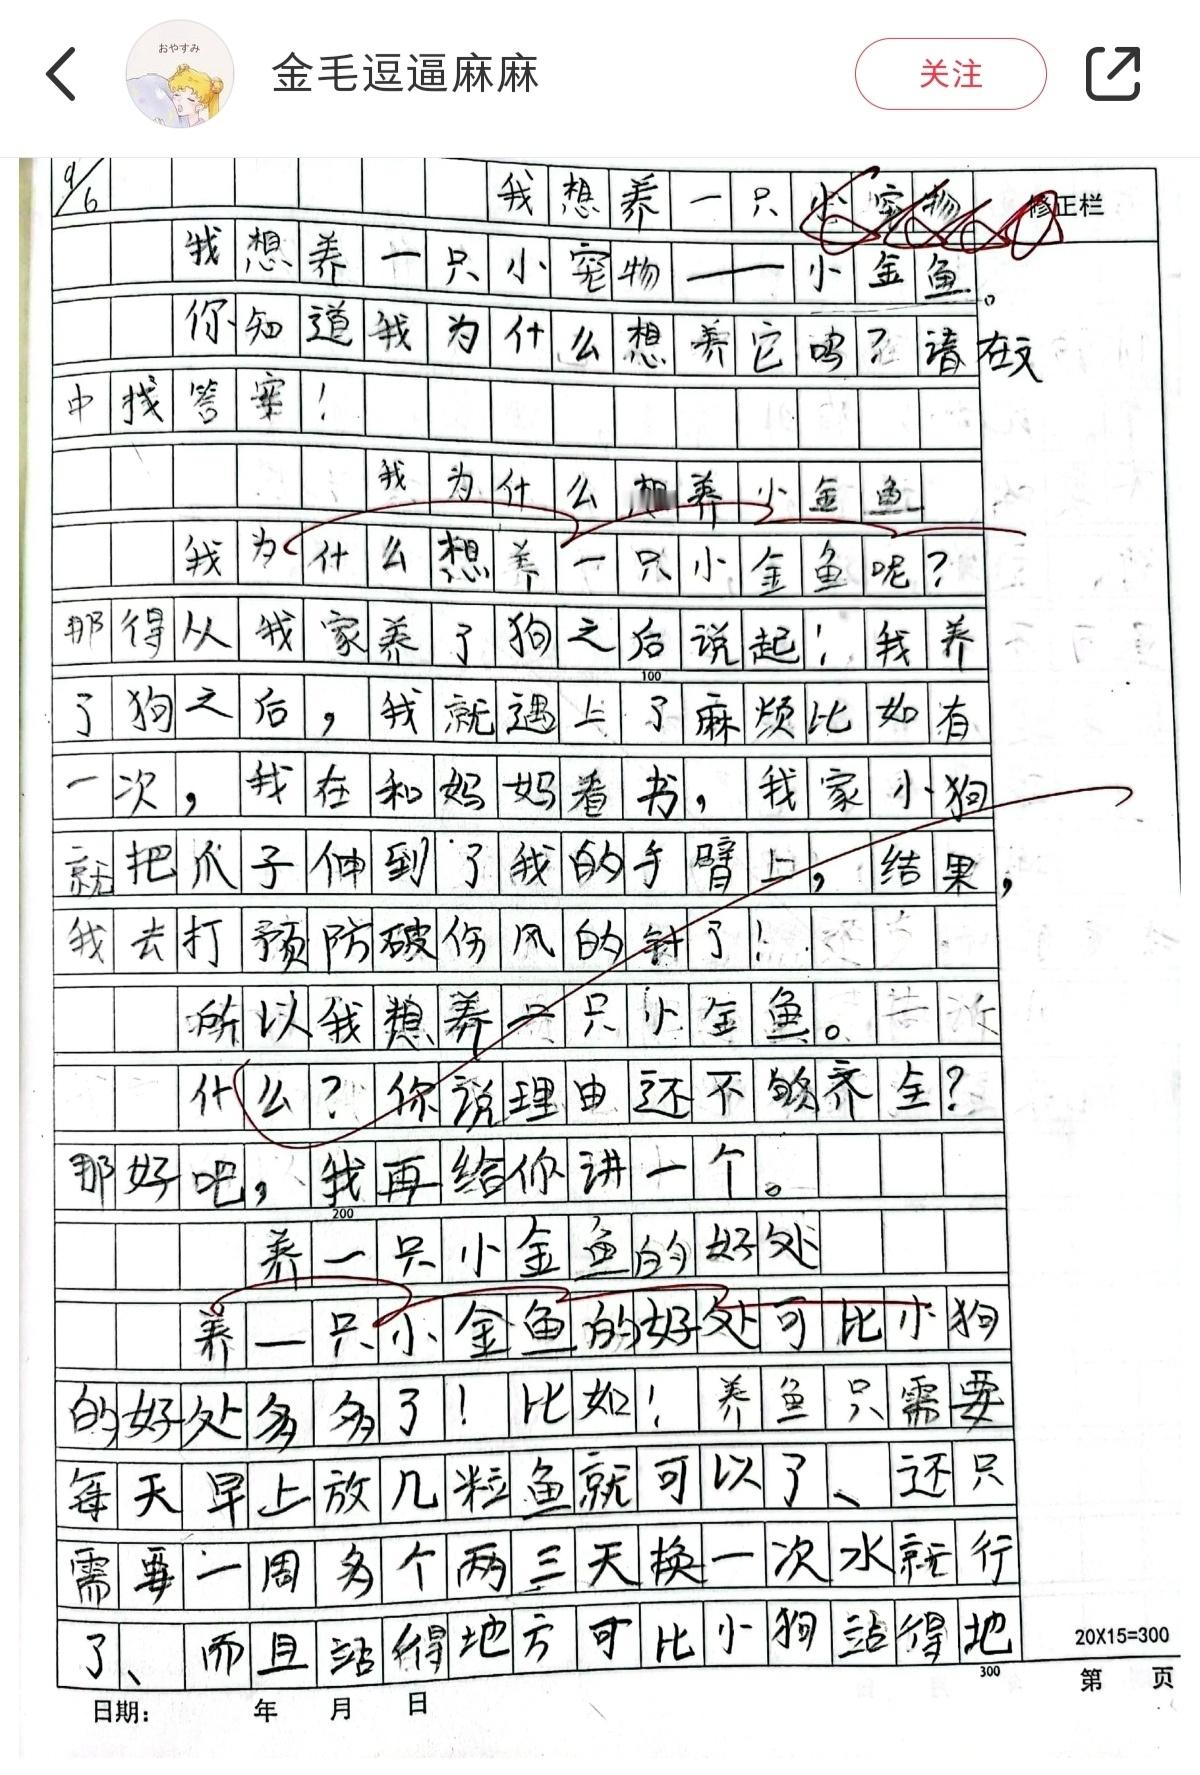 おやすみ
金毛逗逼麻麻
关注
9/6
我想养一只小宠物
修正栏
我想养一只小宠物——小金鱼。
你知道我为什么想养它吗？请在文
中找答案！
我为什么想养小金鱼
我为什么想养一只小金鱼呢？
那得从我家养了狗之后说起！我养
100
了狗之后，我就遇上了麻烦比如有
一次，我在和妈妈看书，我家小狗
就把爪子伸到了我的手臂上，结果，
我去打预防破伤风的针了！
所以我想养一只小金鱼。
什么？你说理由还不够齐全？
那好吧，我再给你讲一个。
200
养一只小金鱼的好处
养一只小金鱼的好处可比小狗
的好处多多了！比如！养鱼只需要
每天早上放几粒鱼就可以了、还只
需要一周多个两三天换一次水就行
了、而且站得地方可比小狗站得地
20X15=300
300
日期： 年 月 日
第 页